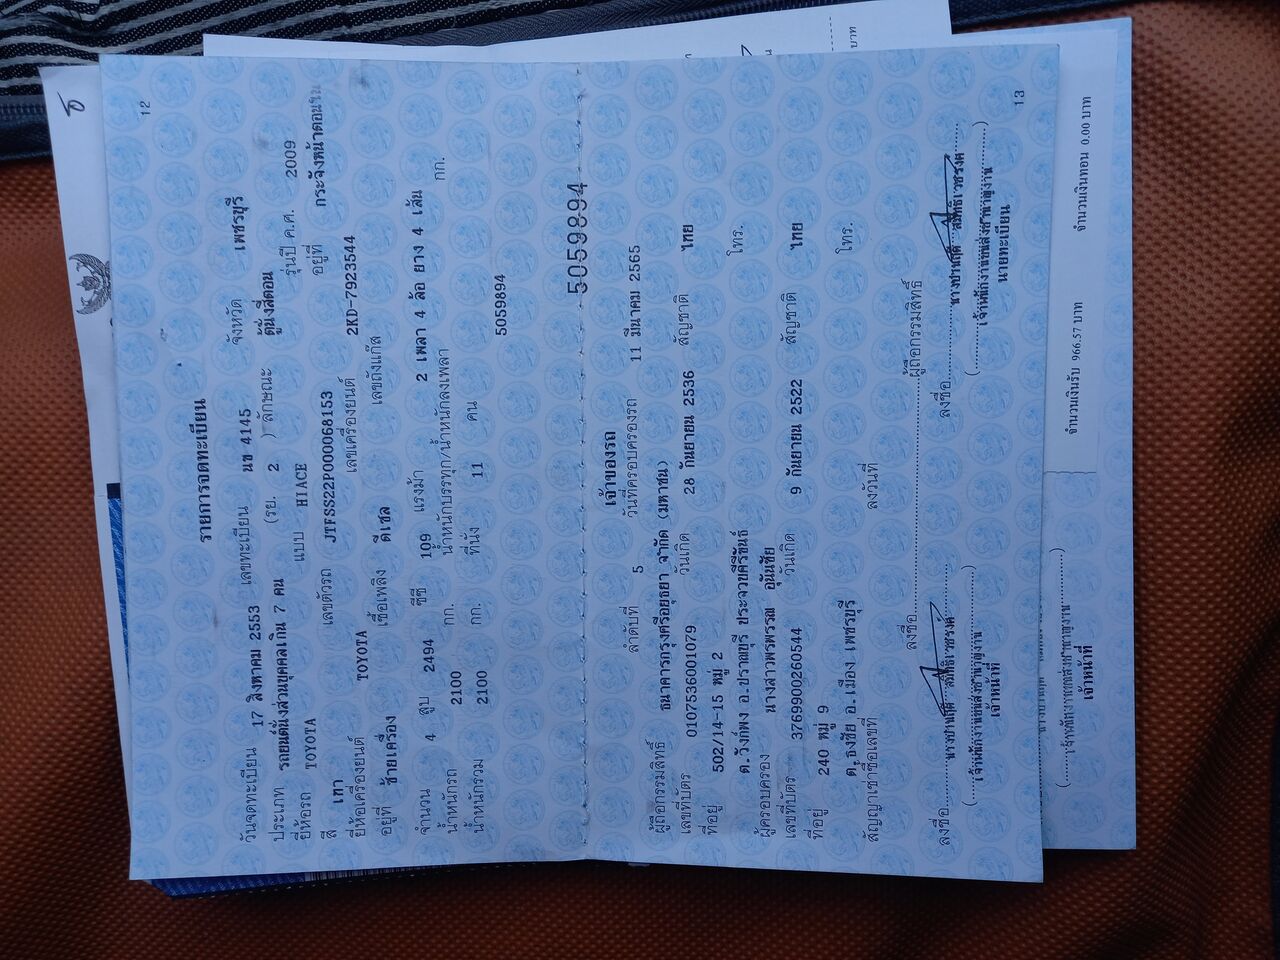 12
รายการจดทะเบียน
วันจดทะเบียน 17 สิงหาคม 2553 เลขทะเบียน นข 4145 จังหวัด เพชรบุรี
ประเภท รถยนต์นั่งส่วนบุคคลเกิน 7 คน (รย. 2 ) ลักษณะ ตู้นั่งสี่ตอน
ยี่ห้อรถ TOYOTA แบบ HIACE รุ่นปี ค.ศ. 2009
สี เทา เลขตัวรถ JTFSS22P000068153 อยู่ที่ กระจังหน้าตอนบน
ยี่ห้อเครื่องยนต์ TOYOTA เลขเครื่องยนต์ 2KD-7923544
อยู่ที่ ซ้ายเครื่อง เชื้อเพลิง ดีเซล เลขถังแก๊ส
จำนวน 4 สูบ 2494 ซีซี 109 แรงม้า 2 เพลา 4 ล้อ ยาง 4 เส้น
น้ำหนักรถ 2100 กก. น้ำหนักบรรทุก/น้ำหนักลงเพลา กก.
น้ำหนักรวม 2100 กก. ที่นั่ง 11 คน
5059894
5059894
เจ้าของรถ
ลำดับที่ 5 วันที่ครอบครองรถ 11 มีนาคม 2565
ผู้ถือกรรมสิทธิ์ ธนาคารกรุงศรีอยุธยา จำกัด (มหาชน)
เลขที่บัตร 0107536001079 วันเกิด 28 กันยายน 2536 สัญชาติ ไทย
ที่อยู่ 502/14-15 หมู่ 2
ต.วังก์พง อ.ปราณบุรี ประจวบคีรีขันธ์ โทร.
ผู้ครอบครอง นางสาวพรพรรณ อุ่นนชัย
เลขที่บัตร 3769900260544 วันเกิด 9 กันยายน 2522 สัญชาติ ไทย
ที่อยู่ 240 หมู่ 9
ต.ธงชัย อ.เมือง เพชรบุรี โทร.
สัญญาเช่าซื้อเลขที่ ลงวันที่
ลงชื่อ ผู้ถือกรรมสิทธิ์
ลงชื่อ ลงชื่อ
เจ้าหน้าที่ นายทะเบียน
13
จำนวนเงินรับ 966.57 บาท จำนวนเงินทอน 0.00 บาท
เจ้าหน้าที่
บาท